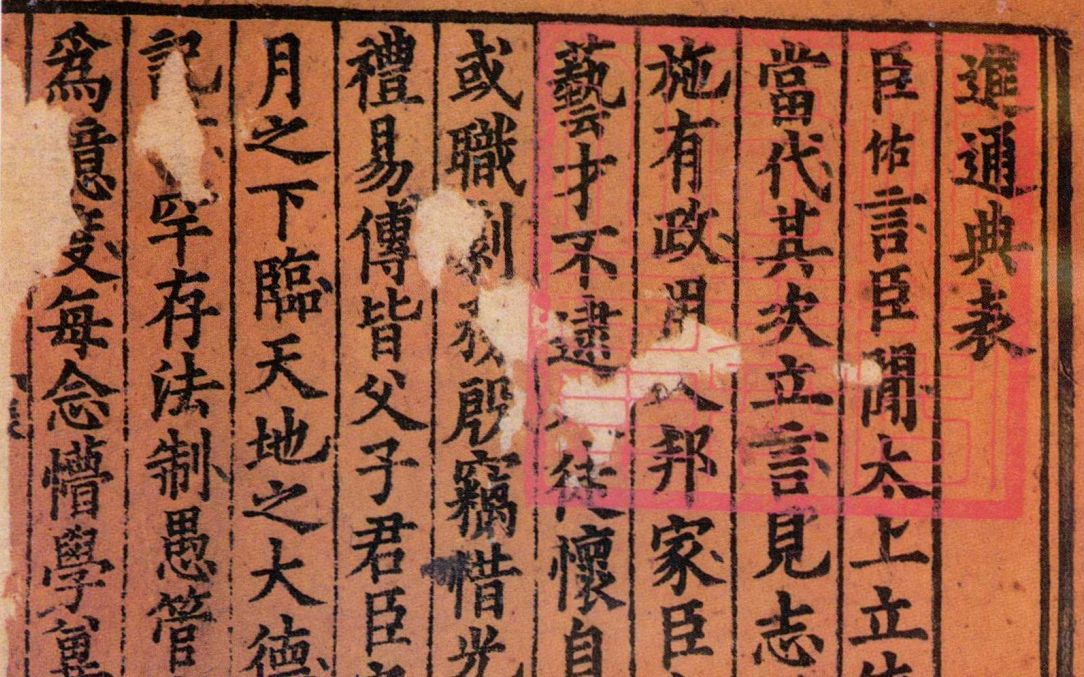 進通典表
臣佑言臣聞太上立
當代其次立言見志
施有政用邦家臣
藝才不逮徒懷自
或職劇務殷竊惜光
禮易傳皆父子君臣
月之下臨天地之大德
記罕存法制愚管
爲億度每念懵學